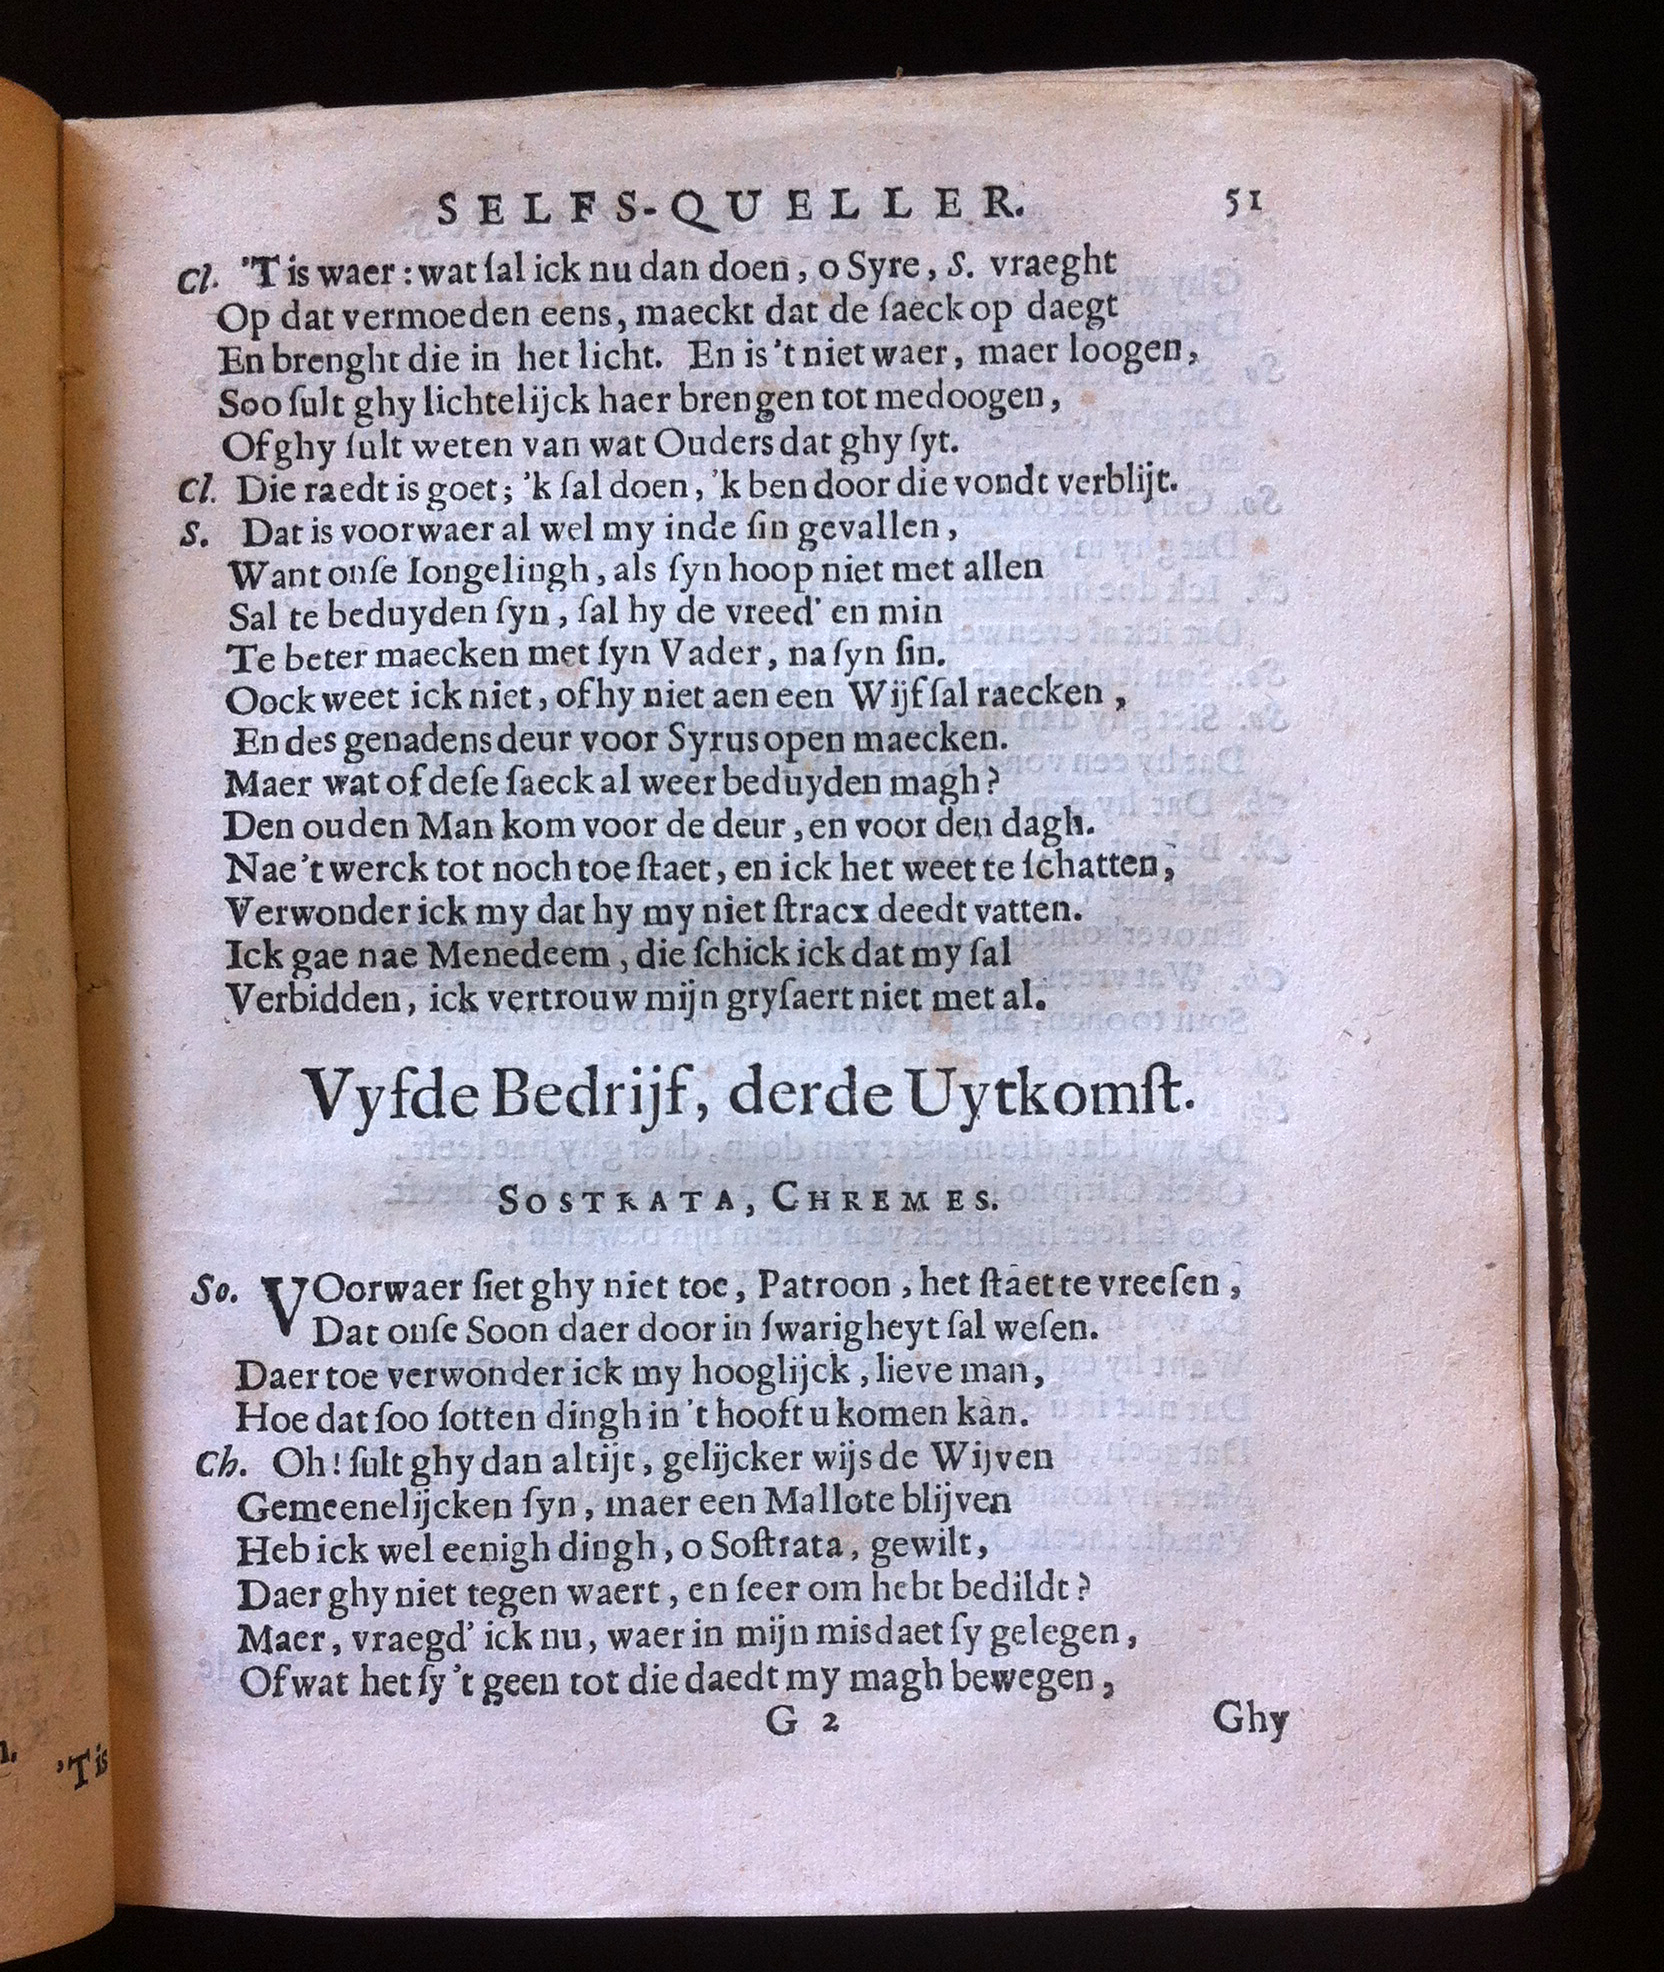 SELFS-QUELLER. 51
Cl. 'T is waer: wat ſal ick nu dan doen, o Syre, S. vraeght
Op dat vermoeden eens, maeckt dat de ſaeck op daegt
En brenght die in het licht. En is 't niet waer, maer loogen,
Soo ſult ghy lichtelijck haer brengen tot medoogen,
Of ghy ſult weten van wat Ouders dat ghy ſyt.
Cl. Die raedt is goet; 'k ſal doen, 'k ben door die vondt verblijt.
S. Dat is voorwaer al wel my inde ſin gevallen,
Want onſe Iongelingh, als ſyn hoop niet met allen
Sal te beduyden ſyn, ſal hy de vreed' en min
Te beter maecken met ſyn Vader, na ſyn ſin.
Oock weet ick niet, of hy niet aen een Wijf ſal raecken,
En des genadens deur voor Syrus open maecken.
Maer wat of deſe ſaeck al weer beduyden magh?
Den ouden Man kom voor de deur, en voor den dagh.
Nae 't werck tot noch toe ſtaet, en ick het weet te ſchatten,
Verwonder ick my dat hy my niet ſtracx deedt vatten.
Ick gae nae Menedeem, die ſchick ick dat my ſal
Verbidden, ick vertrouw mijn gryſaert niet met al.
Vyfde Bedrijf, derde Uytkomſt.
SOSTRATA, CHREMES.
So. VOorwaer ſiet ghy niet toe, Patroon, het ſtaet te vreeſen,
Dat onſe Soon daer door in ſwarigheyt ſal weſen.
Daer toe verwonder ick my hooglijck, lieve man,
Hoe dat ſoo ſotten dingh in 't hooft u komen kan.
Ch. Oh! ſult ghy dan altijt, gelijcker wijs de Wijven
Gemeenelijcken ſyn, maer een Mallote blijven
Heb ick wel eenigh dingh, o Soſtrata, gewilt,
Daer ghy niet tegen waert, en ſeer om hebt bedildt?
Maer, vraegd' ick nu, waer in mijn misdaet ſy gelegen,
Of wat het ſy 't geen tot die daedt my magh bewegen,
G 2 Ghy
'Tis